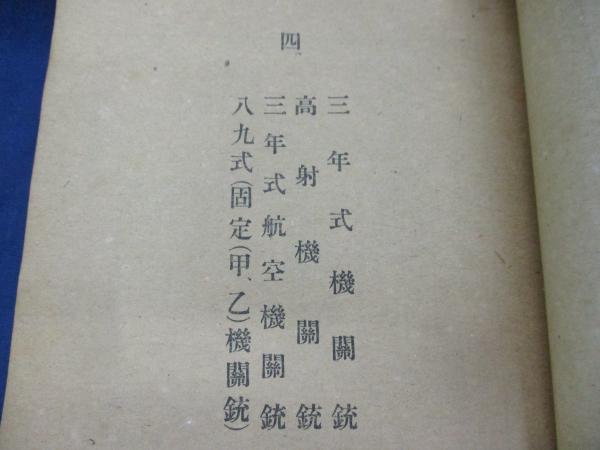 四、
三年式機關銃
高射機關銃
三年式航空機關銃
八九式(固定(甲、乙)機關銃)